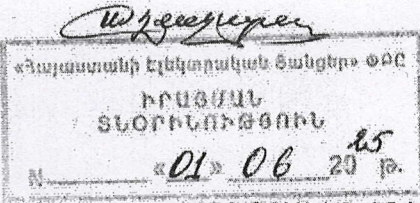 «Հայաստանի էլեկտրական ցանցեր» ՓԲԸ
ԻՐԱՑՄԱՆ
ՏՆՕՐԻՆՈՒԹՅՈՒՆ
N «01» 06 2025 թ.